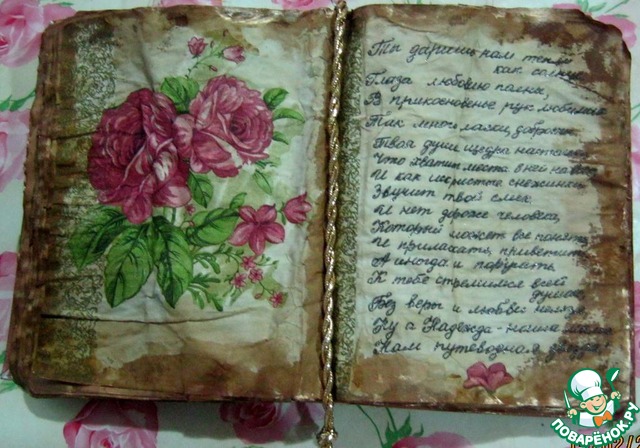 Ты даришь нам тепло
как солнце
Глаза любовью полны,
В прикосновенье рук любимых
Так много ласки, доброты.
Твоя душа щедра настолько
Что хватит места в ней на всех
И как искристые снежинки
Звучит твой смех.
И нет дороже человека,
Который может все понять
И приласкать, приветить
А иногда и поругать.
К тебе стремимся всей
душою
Без веры и любви нельзя
Ну а Надежда - наша мама
Нам путеводная звезда!
ПОВАРЁНОК.РУ